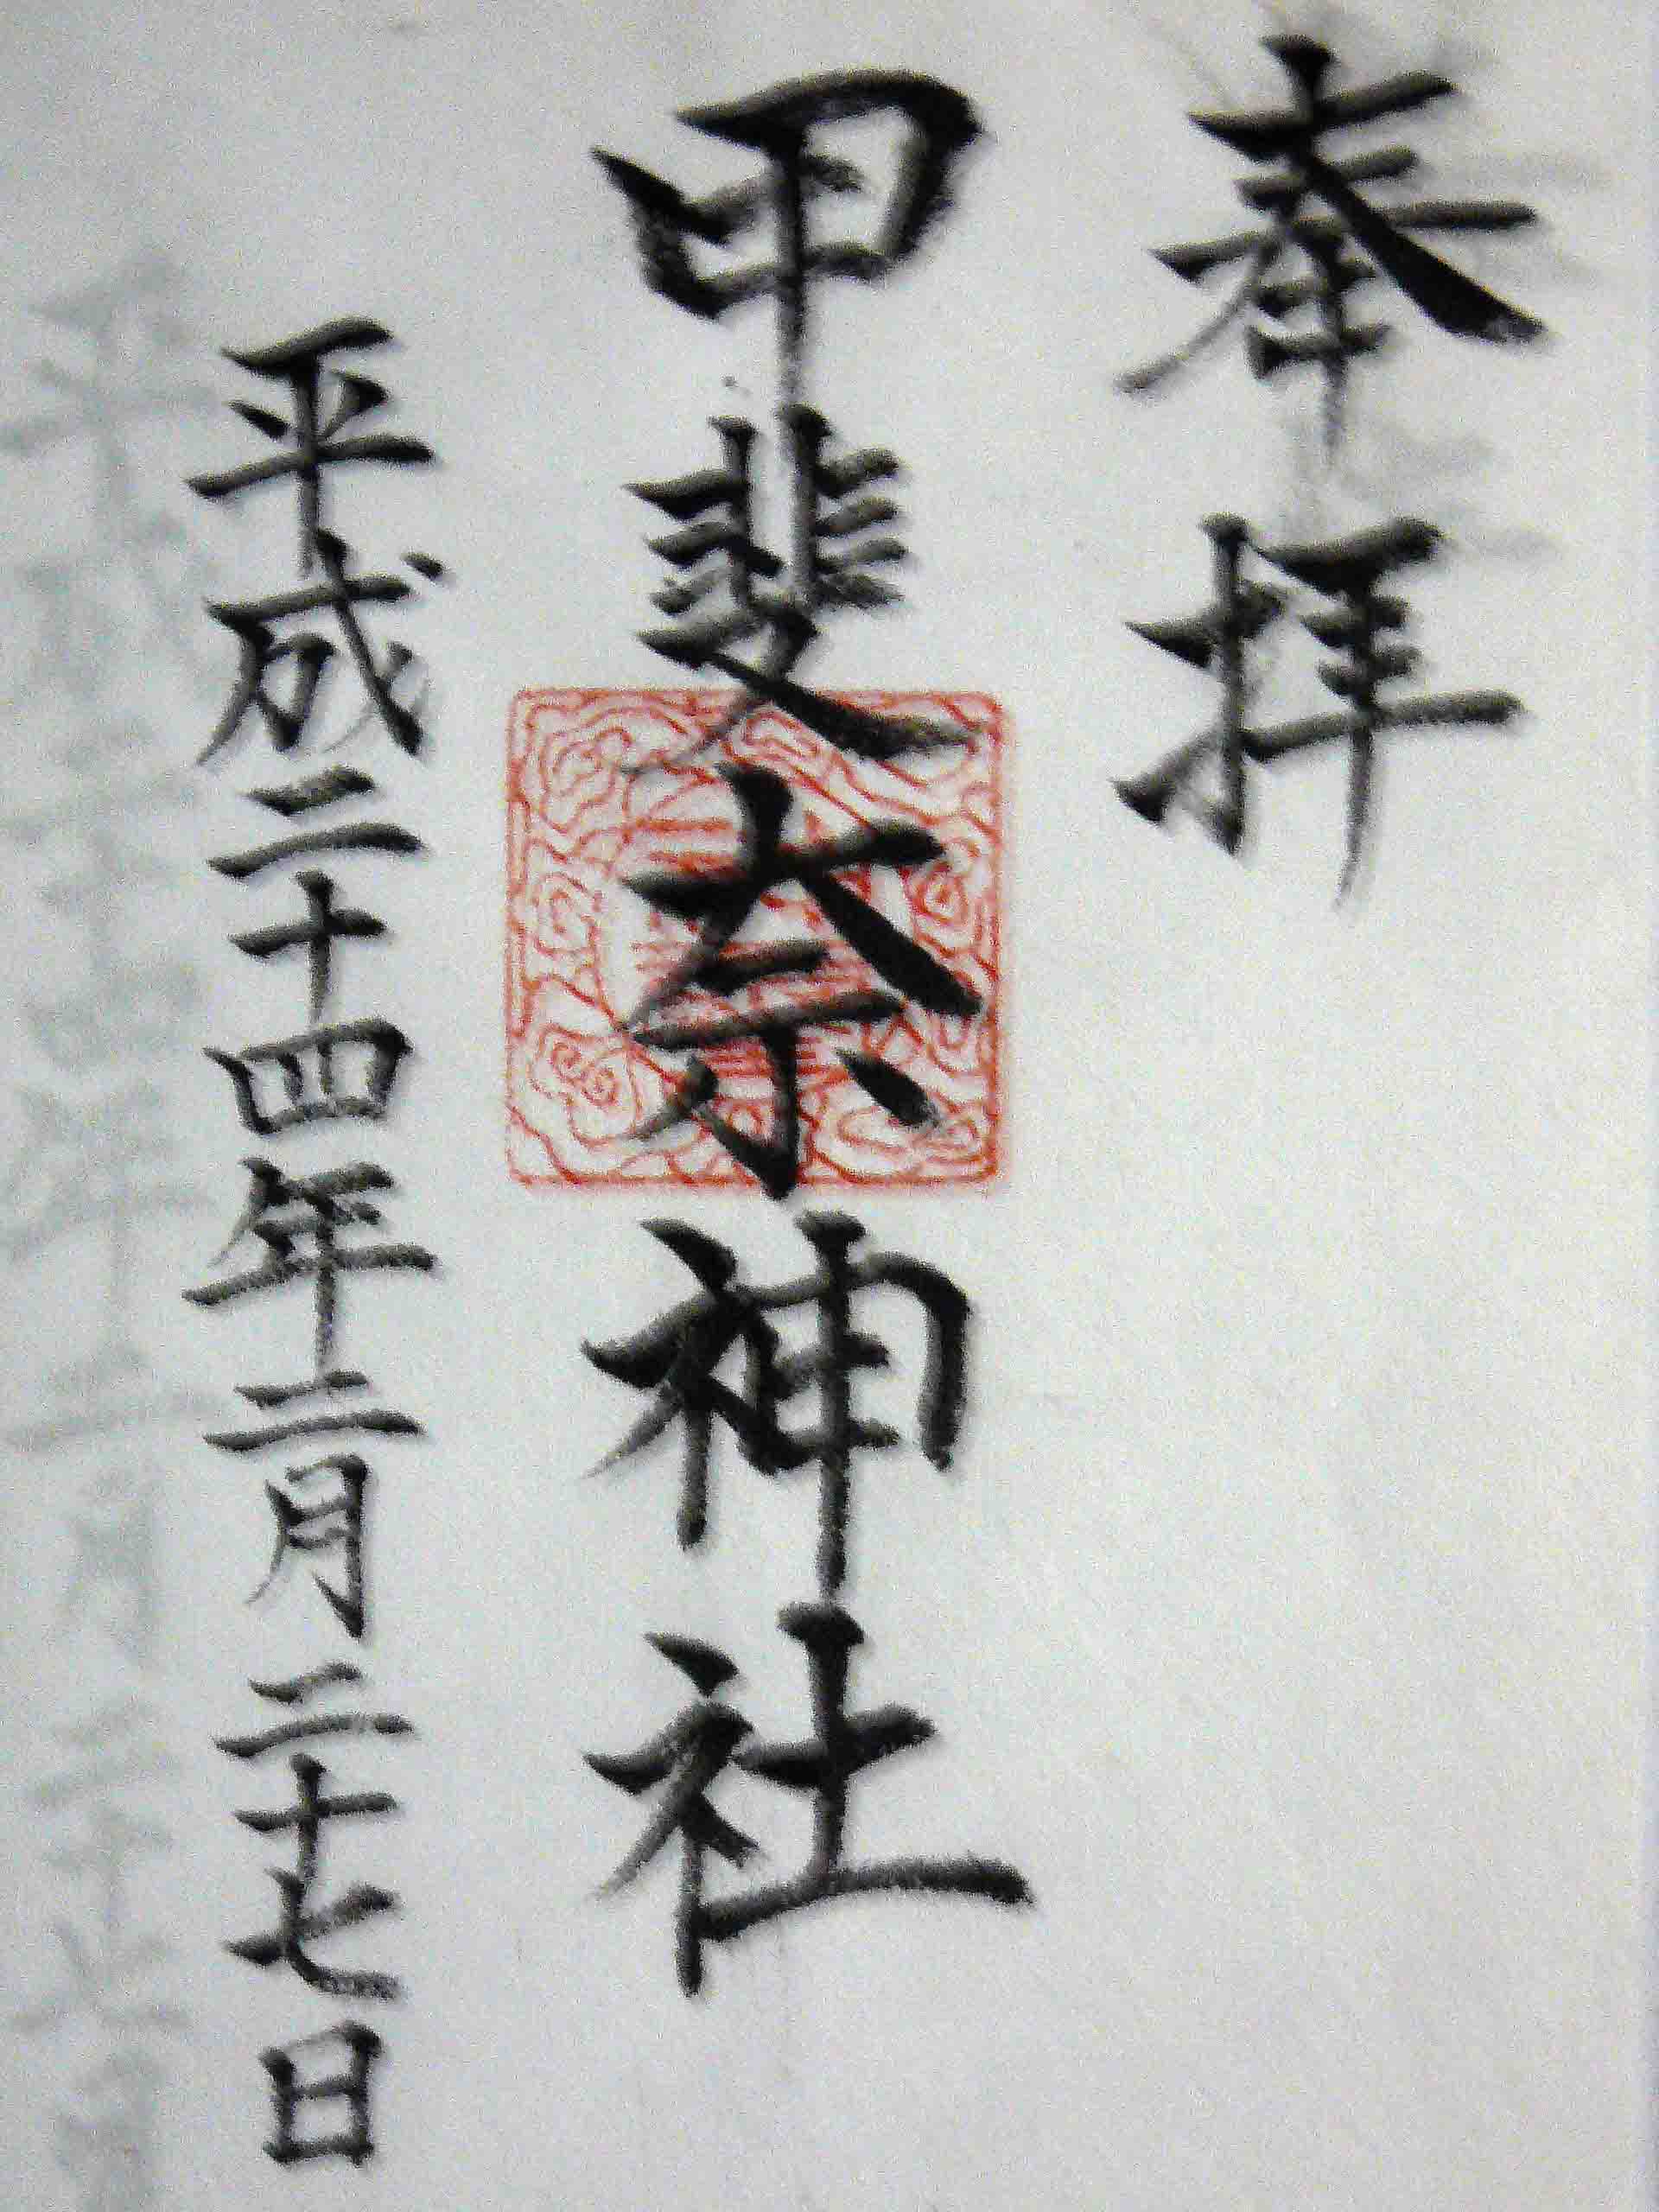 奉拝
甲斐奈神社
平成二十四年二月二十七日